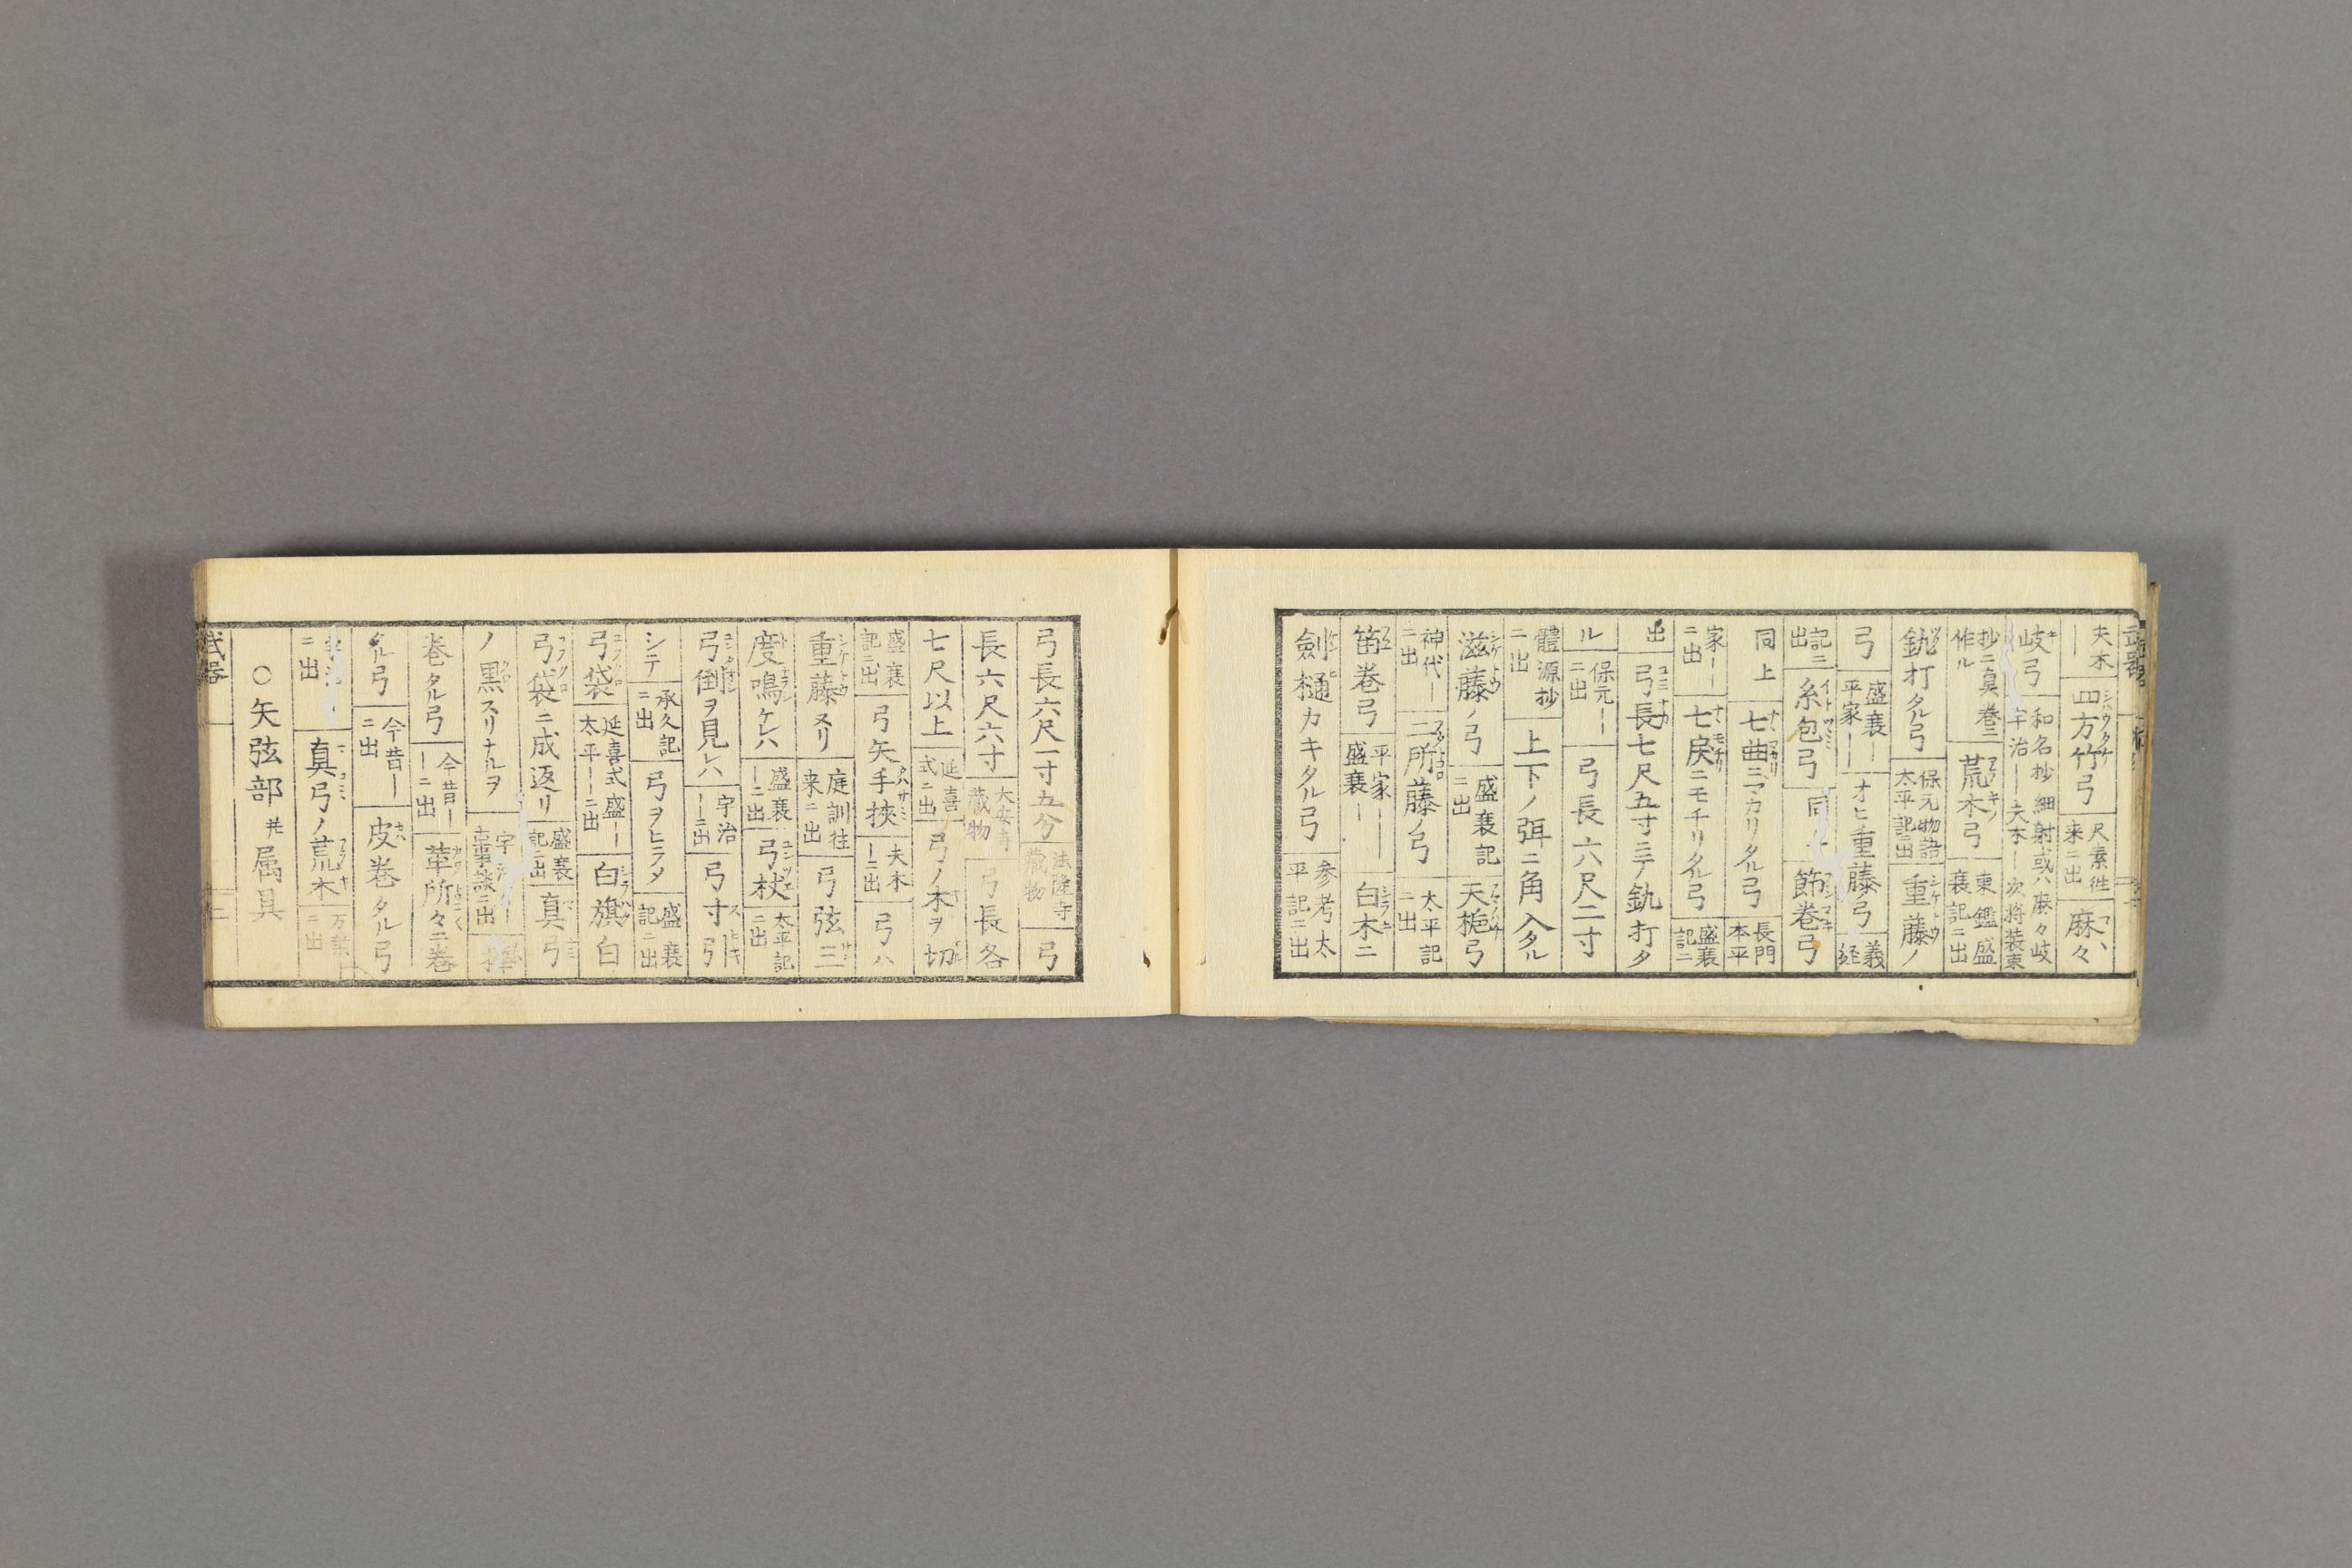 夫木｜
四方竹弓 尺素往来ニ出
麻々
岐弓 和名抄細射或ハ麻々岐 宇治｜夫木｜次将装束
抄ニ真巻ニ作ル
荒木弓 東鑑盛衰記ニ出
釻打タル弓 保元物語太平記出
重藤ノ
弓 盛衰｜平家｜
オヒ重藤弓 義経
記ニ出
糸包弓 同
節巻弓
同上
七曲ニマカリタル弓 長門本平
家｜ニ出
七戻ニモチリタル弓 盛衰記ニ
出
弓長七尺五寸ニテ釻打タ
ル 保元｜ニ出
弓長六尺二寸
體源抄ニ出
上下ノ弭ニ角入タル
滋藤ノ弓 盛衰記ニ出
天梔弓
神代｜ニ出
二所藤ノ弓 太平記ニ出
笛巻弓 平家｜盛衰｜
白木ニ
劍樋カキタル弓 参考太平記ニ出
弓長六尺一寸五分 法隆寺蔵物
弓
長六尺六寸 大安寺蔵物
弓長各
七尺以上 延喜式ニ出
弓ノ本ヲ切
盛衰記ニ出
弓矢手挾 夫木｜ニ出
弓ハ
重藤ヌリ 庭訓往来ニ出
弓弦三
度鳴ケレハ 盛衰｜ニ出
弓杖 太平記ニ出
弓倒ヲ見レハ 宇治｜ニ出
弓寸弓
シテ 承久記ニ出
弓ヲヒラメ 盛衰記ニ出
弓袋 延喜式盛｜太平｜ニ出
白旗白
弓袋ニ成返リ 盛衰記ニ出
真弓
ノ黒スリナルヲ 宇治 古事談ニ出
巻タル弓 今昔｜ニ出
革所々ニ巻
タル弓 今昔｜ニ出
皮巻タル弓
ニ出
真弓ノ荒木 万葉ニ出
○矢弦部 并属具
武器